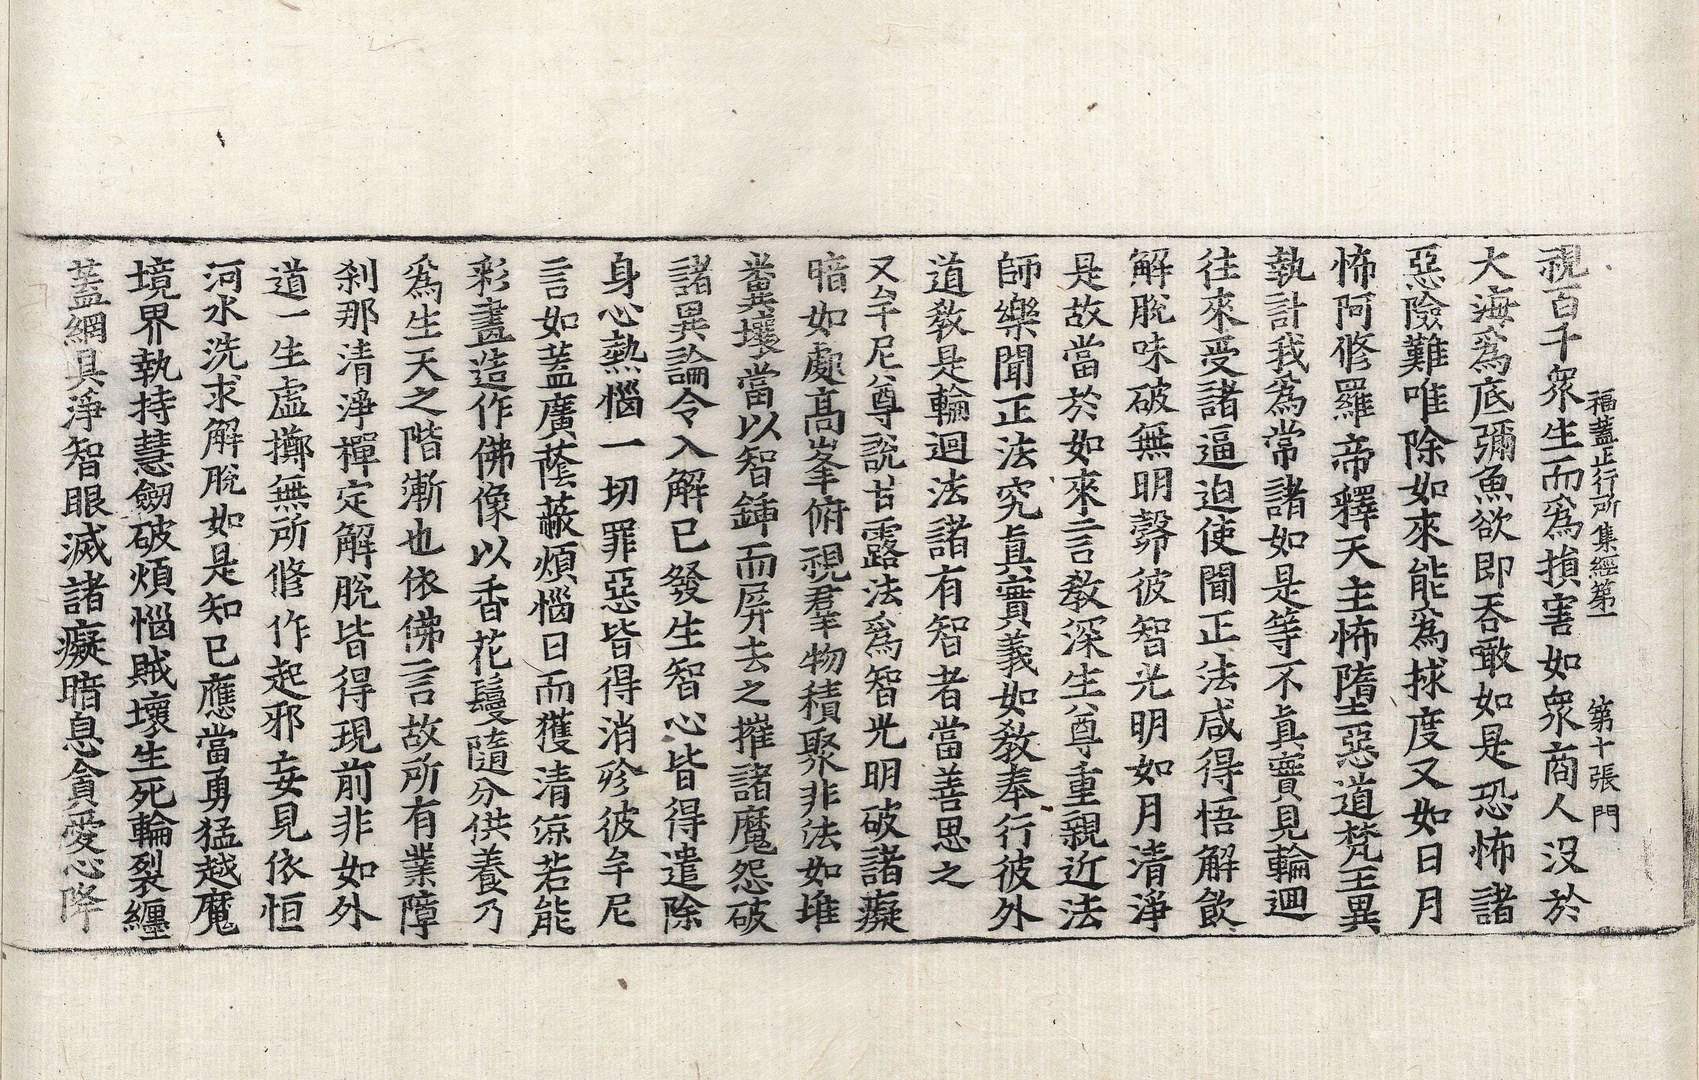 福蓋正行所集經第一 第十張 門
視百千衆生而爲損害如衆商人沒於
大海爲底彌魚欲即吞噉如是恐怖諸
惡險難唯除如來能爲捄度又如日月
怖阿脩羅帝釋天主怖墮惡道梵王異
執計我爲常諸如是等不眞實見輪迴
往來受諸逼迫使聞正法咸得悟解飲
解脫味破無明㲉彼智光明如月清淨
是故當於如來言教深生尊重親近法
師樂聞正法究眞實義如教奉行彼外
道教是輪迴法諸有智者當善思之
又牟尼尊說甘露法爲智光明破諸癡
暗如處高峯俯視羣物積聚非法如堆
糞壤當以智鍤而屏去之摧諸魔怨破
諸異論令入解已發生智心皆得遣除
身心熱惱一切罪惡皆得消殄彼牟尼
言如蓋廣蔭蔽煩惱日而獲清涼若能
彩畫造作佛像以香花鬘隨分供養乃
爲生天之階漸也依佛言故所有業障
刹那清淨禪定解脫皆得現前非如外
道一生虛擲無所脩作起邪妄見依恒
河水洗求解脫如是知已應當勇猛越魔
境界執持慧劒破煩惱賊壞生死輪裂纏
蓋網具淨智眼滅諸癡暗息貪愛心降